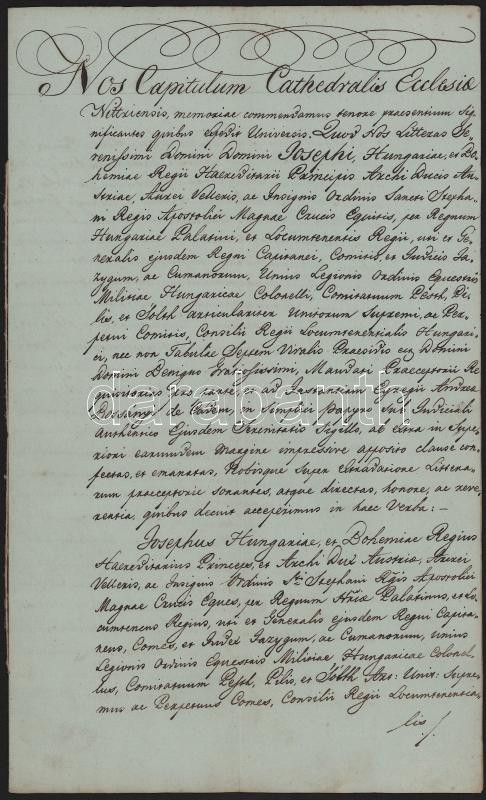 Nos Capitulum Cathedralis Ecclesiæ
Nittriensis, memoriae commendamus tenore praesentium sig-
nificantes quibus expedit Universis. Quod Nos Litteras Se-
renissimi Domini Domini Josephi, Hungariae, et Bo-
hemiae Regii Haereditarii Principis Archi Ducis Au-
striae, Aurei Velleris, ac Insignis Ordinis Sancti Stepha-
ni Regis Apostolici Magnae Crucis Equitis, per Regnum
Hungariae Palatini, et Locumtenentis Regii, uti et Ge-
neralis ejusdem Regni Capitanei, Comitis, et Judicis Ja-
zygum, ac Cumanorum, Unius Legionis Ordinis Equestris
Militiae Hungaricae Colonelli, Comitatuum Pesth, Pi-
lis, et Solth Articulariter Unitorum Supremi, ac Per-
petui Comitis, Consilii Regii Locumtenentialis Hungari-
ci, nec non Tabulae Septem Viralis Praesidis etc Domini
Domini Benigne Gratiosissimi, Mandati Praeceptorii Re-
quisitorias pro parte, et ad Instantiam Egregii Andreae
de in Simplici Papyro Sub Judiciali
Authentico Ejusdem Serenitatis Sigillo, ac extra in Supe-
riori earumdem margine impressive apposito clause con-
fectas, et emanatas, Nobisque Super extradatione Littera-
rum praeceptorie sonantes, atque directas, honore, ac reve-
rentia, quibus decuit accepimus in haec Verba: –
Josephus Hungariae, et Bohemiae Regius
Haereditarius Princeps, et Archi Dux Austriae, Aurei
Velleris, ac Insignis Ordinis Sti Stephani Regis Apostolici
Magnae Crucis Eques, per Regnum Hriæ Palatinus, et Lo-
cumtenens Regius, uti et Generalis ejusdem Regni Capita-
neus, Comes, et Judex Jazygum, ac Cumanorum, Unius
Legionis Ordinis Equestris Militiae Hungaricae Colonel-
lus, Comitatuum Pesth, Pilis, et Solth Art: Unit: Supre-
mus ac Perpetuus Comes, Consilii Regii Locumtenentia-
lis
darabanth